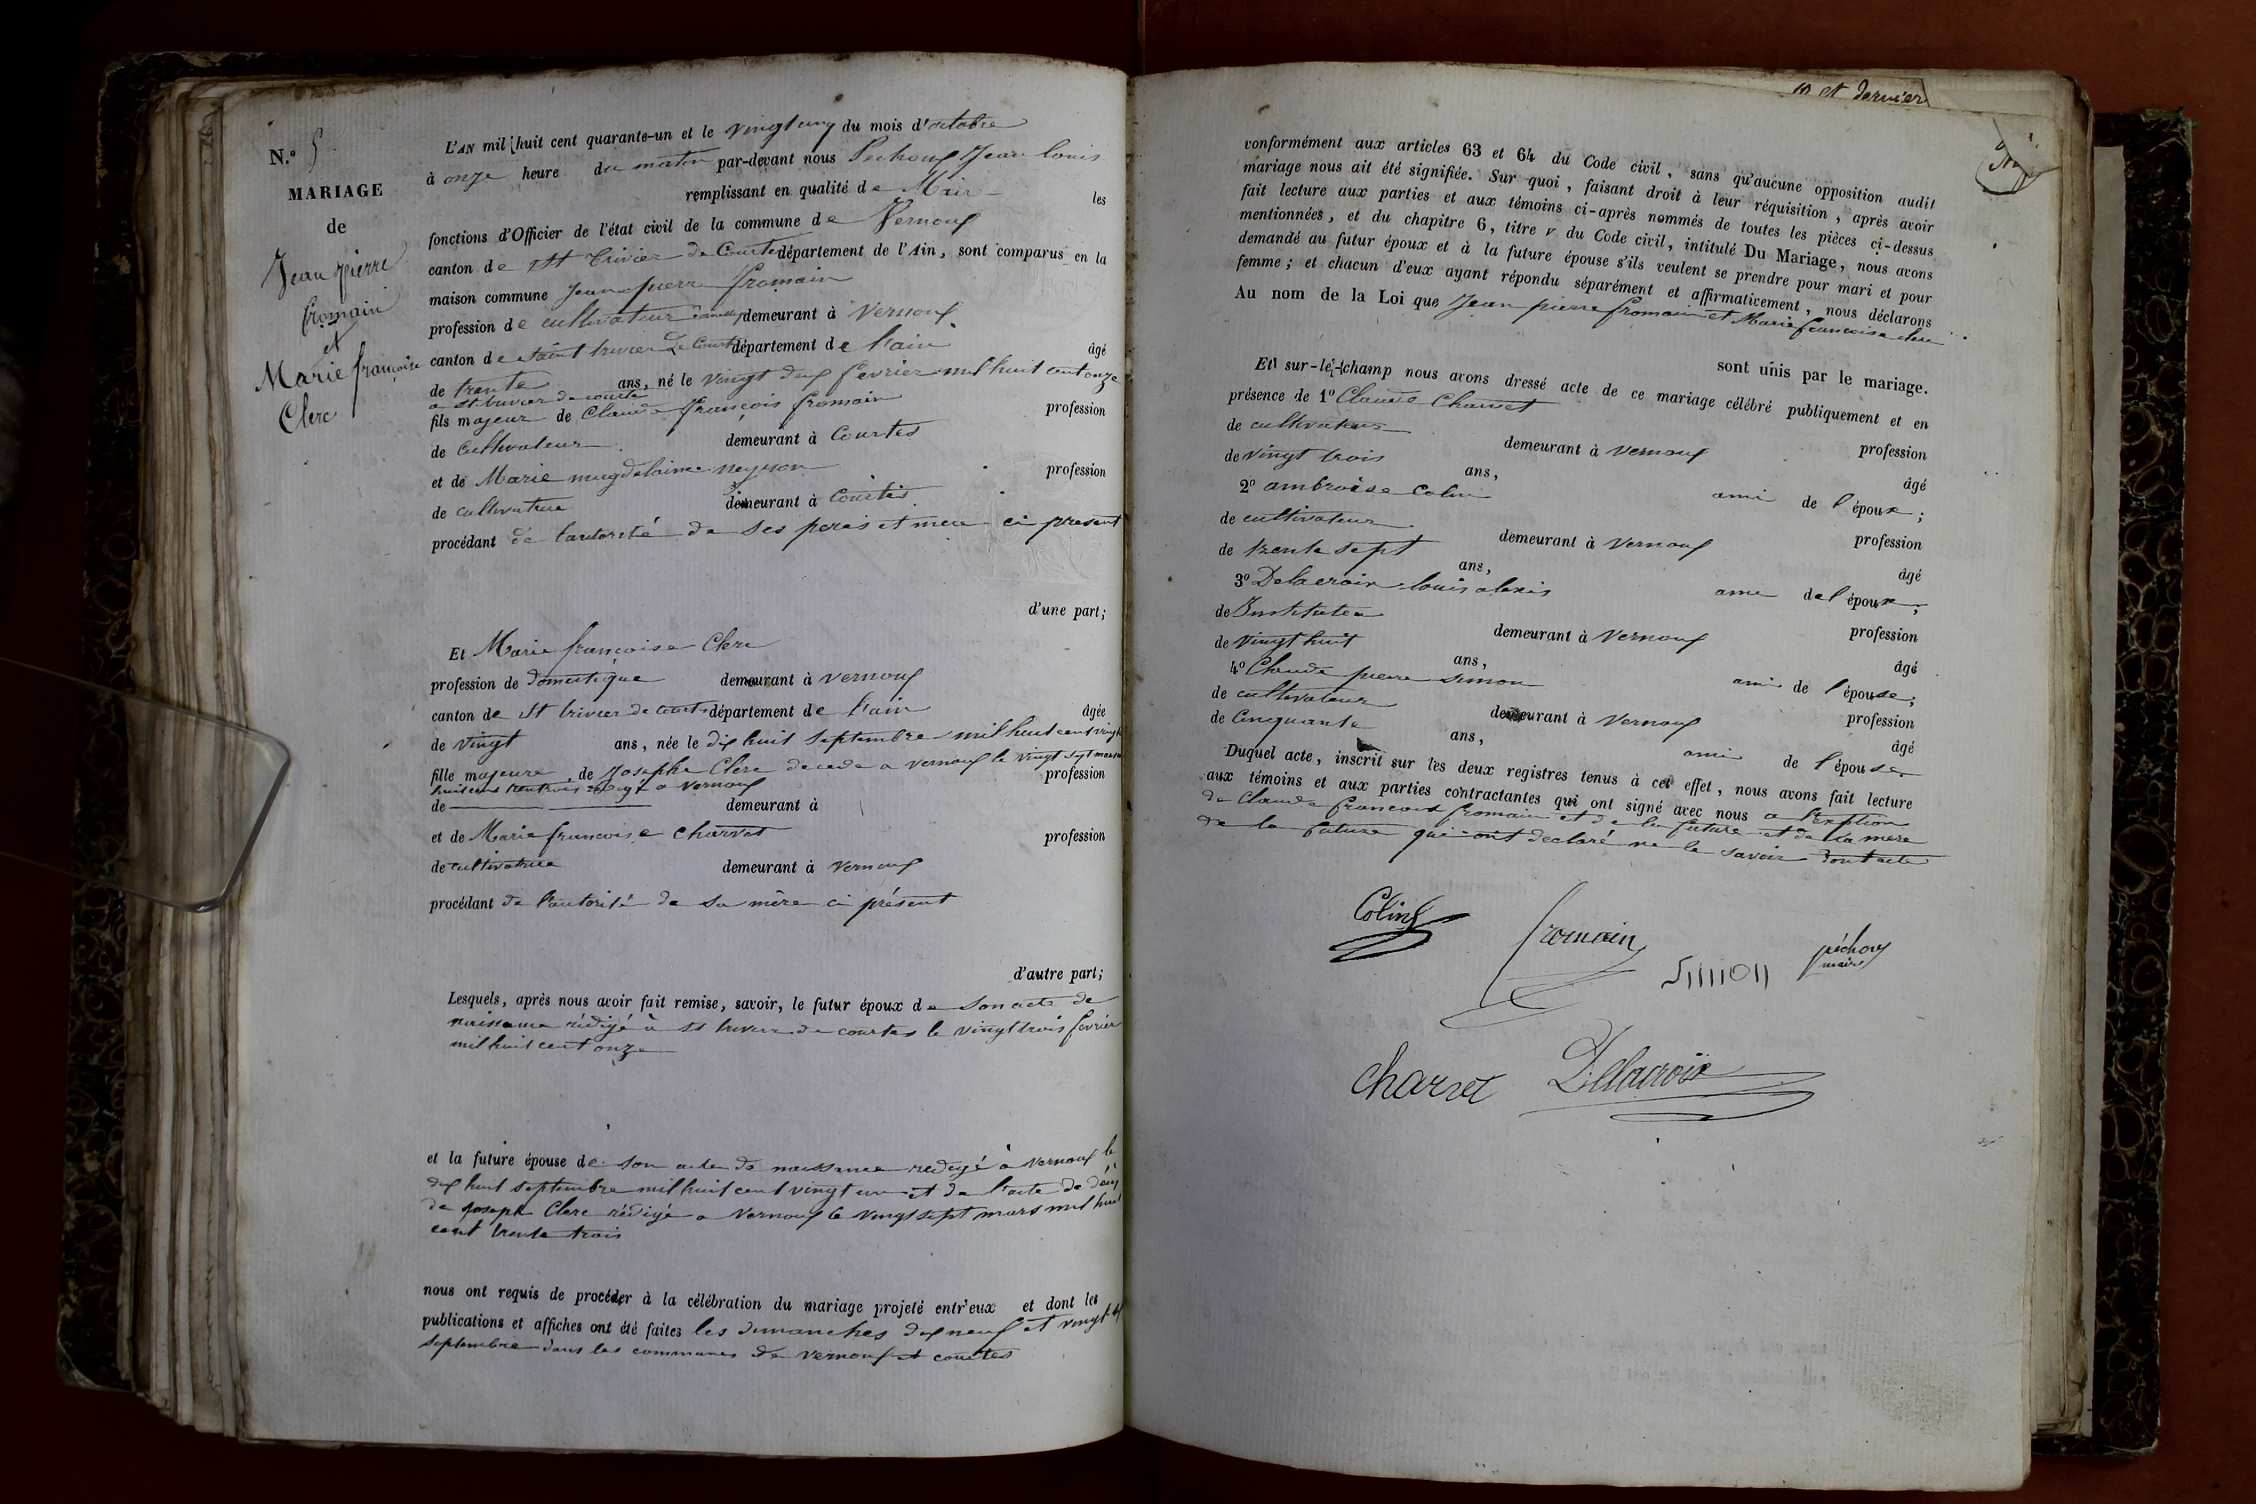 N.o 5
MARIAGE
de
Jean pierre
fromain
et
Marie françoise
Clerc
L'AN mil huit cent quarante-un et le vingt cinq du mois d'octobre
à onze heure du matin par-devant nous Pechoux Jean louis
remplissant en qualité de Maire les
fonctions d'Officier de l'état civil de la commune de Vernoux
canton de St Trivier de Courtes département de l'Ain, sont comparus en la
maison commune Jean pierre fromain
profession de cultivateur demeurant à Vernoux
canton de saint trivier De Courtes département de l'ain âgé
de trente ans, né le vingt deux fevrier mil huit cent onze
a St trivier de courte
fils majeur de Claude françois fromain profession
de Cultivateur demeurant à Courtes
et de Marie magdelaine neyron profession
de cultivatrice demeurant à Courtes
procédant de l'autorité de ses peres et mere ci present
d'une part;
Et Marie françoise Clerc
profession de domestique demeurant à vernoux
canton de St trivier de Courtes département de l'ain âgée
de vingt ans, née le dix huit septembre mil huit cent vingt
fille majeure de Josephe Clerc decede a vernoux le vingt sept mars
huit cent trente trois redigé a vernoux profession
de demeurant à
et de Marie francoise charvet profession
de cultivatrice demeurant à vernoux
procédant de l'autorité de sa mère ci présent
d'autre part;
Lesquels, après nous avoir fait remise, savoir, le futur époux de son acte de
naissance rédigé à St trivier de courtes le vingt trois fevrier
mil huit cent onze
et la future épouse de son acte de naissance redigé a vernoux le
dix huit septembre mil huit cent vingt un et de l'acte de décès
de joseph Clerc rédigé a vernoux le vingt sept mars mil huit
cent trente trois
nous ont requis de procéder à la célébration du mariage projeté entr'eux et dont les
publications et affiches ont été faites les dimanches dix neuf et vingt six
septembre dans les communes de vernoux et courtes
10 et dernier
conformément aux articles 63 et 64 du Code civil, sans qu'aucune opposition audit
mariage nous ait été signifiée. Sur quoi, faisant droit à leur réquisition, après avoir
fait lecture aux parties et aux témoins ci-après nommés de toutes les pièces ci-dessus
mentionnées, et du chapitre 6, titre v du Code civil, intitulé Du Mariage, nous avons
demandé au futur époux et à la future épouse s'ils veulent se prendre pour mari et pour
femme; et chacun d'eux ayant répondu séparément et affirmativement, nous déclarons
Au nom de la Loi que Jean pierre fromain et Marie francoise clerc
sont unis par le mariage.
Et sur-le-champ nous avons dressé acte de ce mariage célébré publiquement et en
présence de 1o Claude Charvet
de cultivateur demeurant à vernoux profession
de vingt trois ans, âgé
ami de l'époux;
2o ambroise Colin
de cultivateur demeurant à vernoux profession
de trente sept ans, âgé
ami de l'époux;
3o Delacroix louis alexis
de Instituteur demeurant à vernoux profession
de vingt huit ans, âgé
ami de l'épouse;
4o Claude pierre Simon
de cultivateur demeurant à vernoux profession
de Cinquante ans, âgé
ami de l'épouse.
Duquel acte, inscrit sur les deux registres tenus à cet effet, nous avons fait lecture
aux témoins et aux parties contractantes qui ont signé avec nous a l'exption
de Claude francois fromain et de la future et de sa mere
de la future qui ont declaré ne le savoir dont acte
Colin
fromain
simon
péchoux
maire
charvet
Delacroix